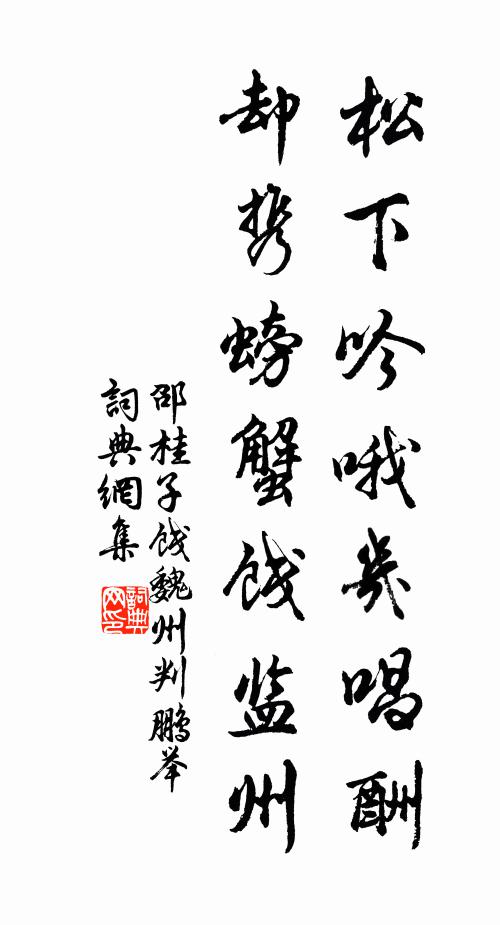 松下吟哦几唱酬
却携螃蟹饯监州
邵桂子饯魏州判鹏举
詞典網集
詞典网印